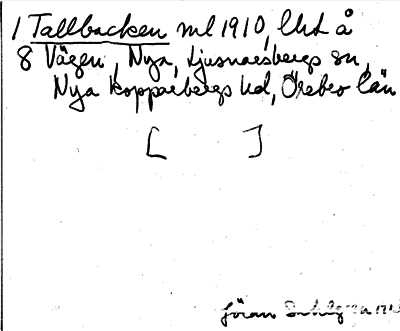 1 Tallbacken ml 1910, lht å
8 Vägen, Nya, Ljusnarsbergs sn,
Nya Kopparbergs hd, Örebro län
[ ]
Jöran Sahlgren